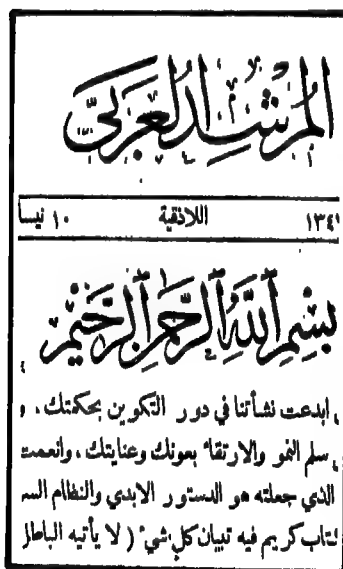 المرشد العربي
١٣٤ اللاذقية ١٠ نيسا
بسم الله الرحمن الرحيم
ابدعت نشأتنا في دور التكوين بحكمتك ، و
سلم النمو والارتقاء بعونك وعنايتك ، وانعمت
الذي جعلته هو الدستور الابدي والنظام الس
كتاب كريم فيه تبيان كل شيء ( لا يأتيه الباطل